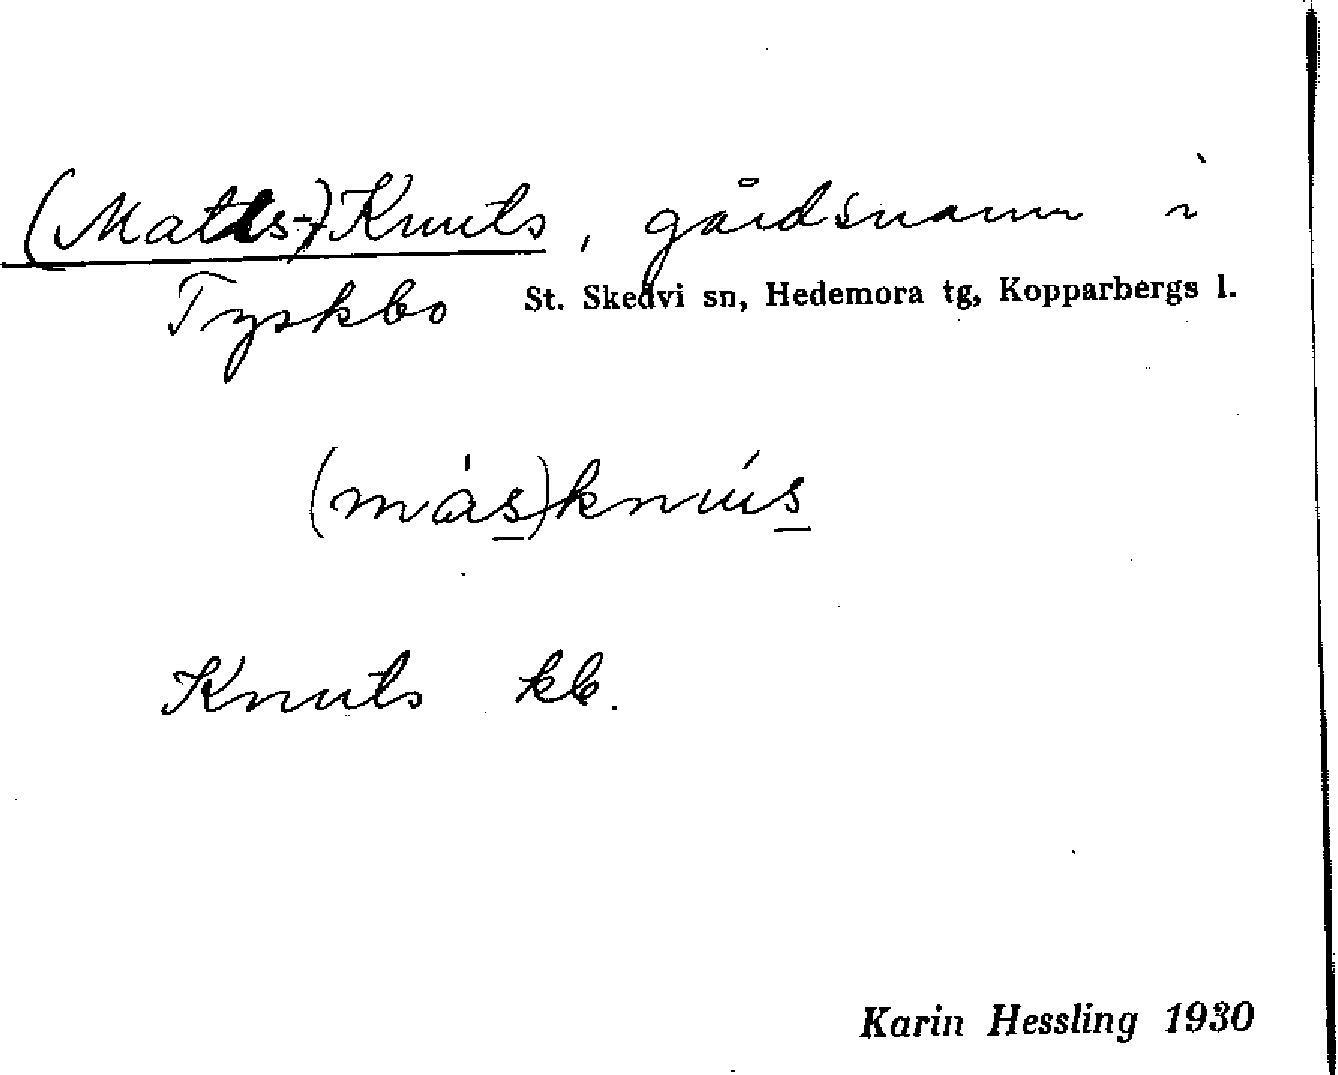 (Matts-)Knuts, gårdsnamn i
Tyskbo St. Skedvi sn, Hedemora tg, Kopparbergs l.
(más)knús
Knuts kb.
Karin Hessling 1930